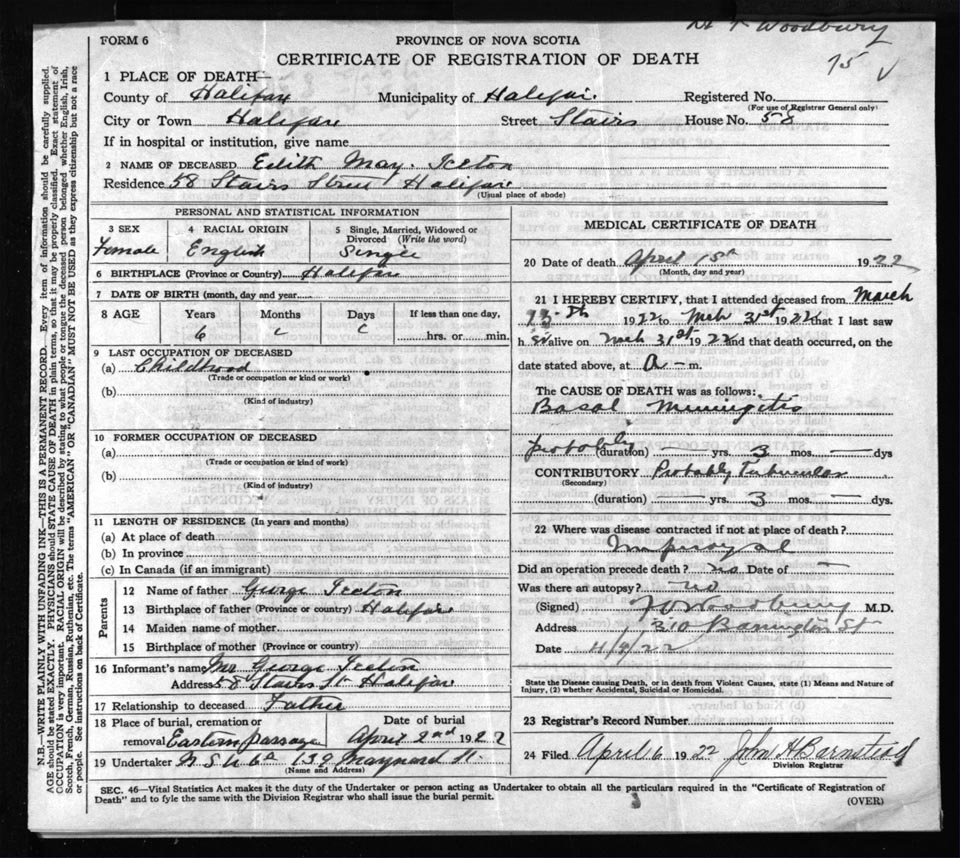 Woodbury
75
FORM 6
PROVINCE OF NOVA SCOTIA
CERTIFICATE OF REGISTRATION OF DEATH
1 PLACE OF DEATH—
County of Halifax Municipality of Halifax Registered No.
(For use of Registrar General only)
City or Town Halifax Street Stairs House No. 58
If in hospital or institution, give name
2 NAME OF DECEASED Edith May
Residence 58 Stairs Street Halifax
(Usual place of abode)
PERSONAL AND STATISTICAL INFORMATION
3 SEX 4 RACIAL ORIGIN 5 Single, Married, Widowed or Divorced (Write the word)
Female English Single
6 BIRTHPLACE (Province or Country) Halifax
7 DATE OF BIRTH (month, day and year)
8 AGE Years Months Days If less than one day,
6 hrs. or min.
9 LAST OCCUPATION OF DECEASED
(a) Childhood
(Trade or occupation or kind or work)
(b)
(Kind of industry)
10 FORMER OCCUPATION OF DECEASED
(a)
(Trade or occupation or kind of work)
(b)
(Kind of industry)
11 LENGTH OF RESIDENCE (In years and months)
(a) At place of death
(b) In province
(c) In Canada (if an immigrant)
Parents
12 Name of father George
13 Birthplace of father (Province or country) Halifax
14 Maiden name of mother
15 Birthplace of mother (Province or country)
16 Informant's name Mr George
Address 58 Stairs St Halifax
17 Relationship to deceased Father
18 Place of burial, cremation or Date of burial
removal Eastern Passage April 2nd 1922
19 Undertaker N S U Co 139 Maynard St.
(Name and Address)
MEDICAL CERTIFICATE OF DEATH
20 Date of death April 1st 1922
(Month, day and year)
21 I HEREBY CERTIFY, that I attended deceased from March
13th 1922 to Mch 31st 1922 that I last saw
h er alive on Mch 31st 1922 and that death occurred, on the
date stated above, at a — m.
The CAUSE OF DEATH was as follows:
Basal Meningitis
probably (duration) — yrs. 3 mos. — dys
CONTRIBUTORY Probably Tubercular
(Secondary)
(duration) — yrs. 3 mos. — dys.
22 Where was disease contracted if not at place of death?
Did an operation precede death? no Date of —
Was there an autopsy? no
(Signed) Woodbury M.D.
Address 310 Barrington St
Date 4/9/22
State the Disease causing Death, or in death from Violent Causes, state (1) Means and Nature of
Injury, (2) whether Accidental, Suicidal or Homicidal.
23 Registrar's Record Number
24 Filed April 6 1922 John H Barnstead
Division Registrar
SEC. 46—Vital Statistics Act makes it the duty of the Undertaker or person acting as Undertaker to obtain all the particulars required in the "Certificate of Registration of
Death" and to fyle the same with the Division Registrar who shall issue the burial permit.
(OVER)
N.B.—WRITE PLAINLY WITH UNFADING INK—THIS IS A PERMANENT RECORD.—Every item of information should be carefully supplied.
AGE should be stated EXACTLY. PHYSICIANS should STATE CAUSE OF DEATH in plain terms, so that it may be properly classified. Exact statement of
OCCUPATION is very important. RACIAL ORIGIN will be described by stating to what people or tongue the deceased person belonged whether English, Irish,
Scotch, French, German, Russian, Ruthenian, etc. The terms "AMERICAN" OR "CANADIAN" MUST NOT BE USED as they express citizenship but not a race
or people. See instructions on back of Certificate.